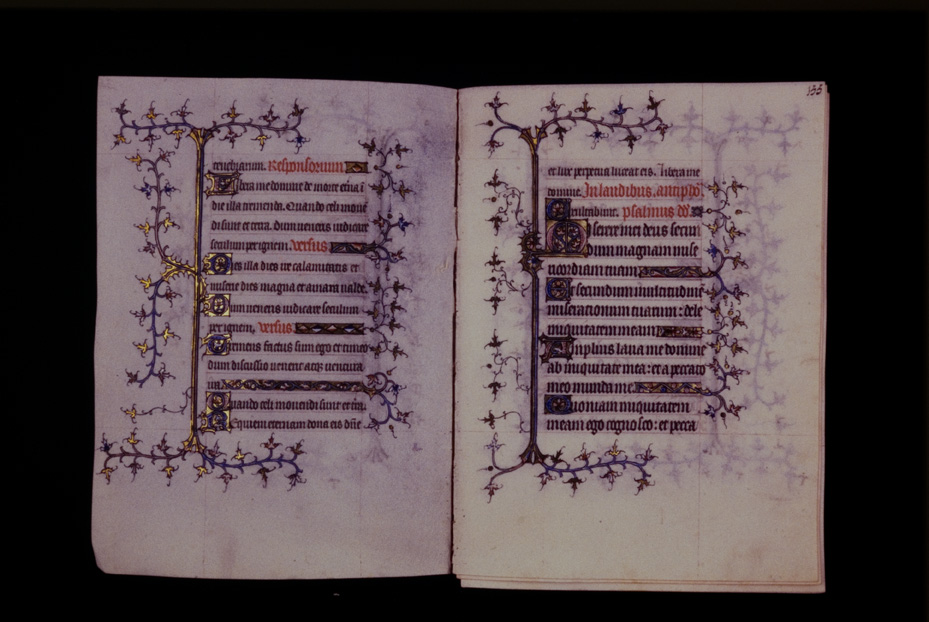 tenebrarum. Responsorium
Libera me domine de morte eterna i
die illa tremenda. Quando celi mouē
di sunt et terra. Dum veneris iudicare
seculum per ignem. versus
Dies illa dies ire calamitatis et
miserie dies magna et amara valde.
Dum veneris iudicare seculum
per ignem. versus
Tremens factus sum ego et timeo
dum discussio venerit atqz ventura
ira
Quando celi mouendi sunt et
Requiem eternam dona eis dn̄e
135
et lux perpetua luceat eis. Libera me
domine. In laudibus. antiph̄
Exultabunt. psalmus dd
Miserere mei deus secun
dum magnam mise
ricordiam tuam
Et secundum multitudinē
miserationum tuarum : dele
iniquitatem meam
Amplius laua me domine
ab iniquitate mea : et a peccato
meo munda me
Quoniam iniquitatem
meam ego cognosco : et pecca